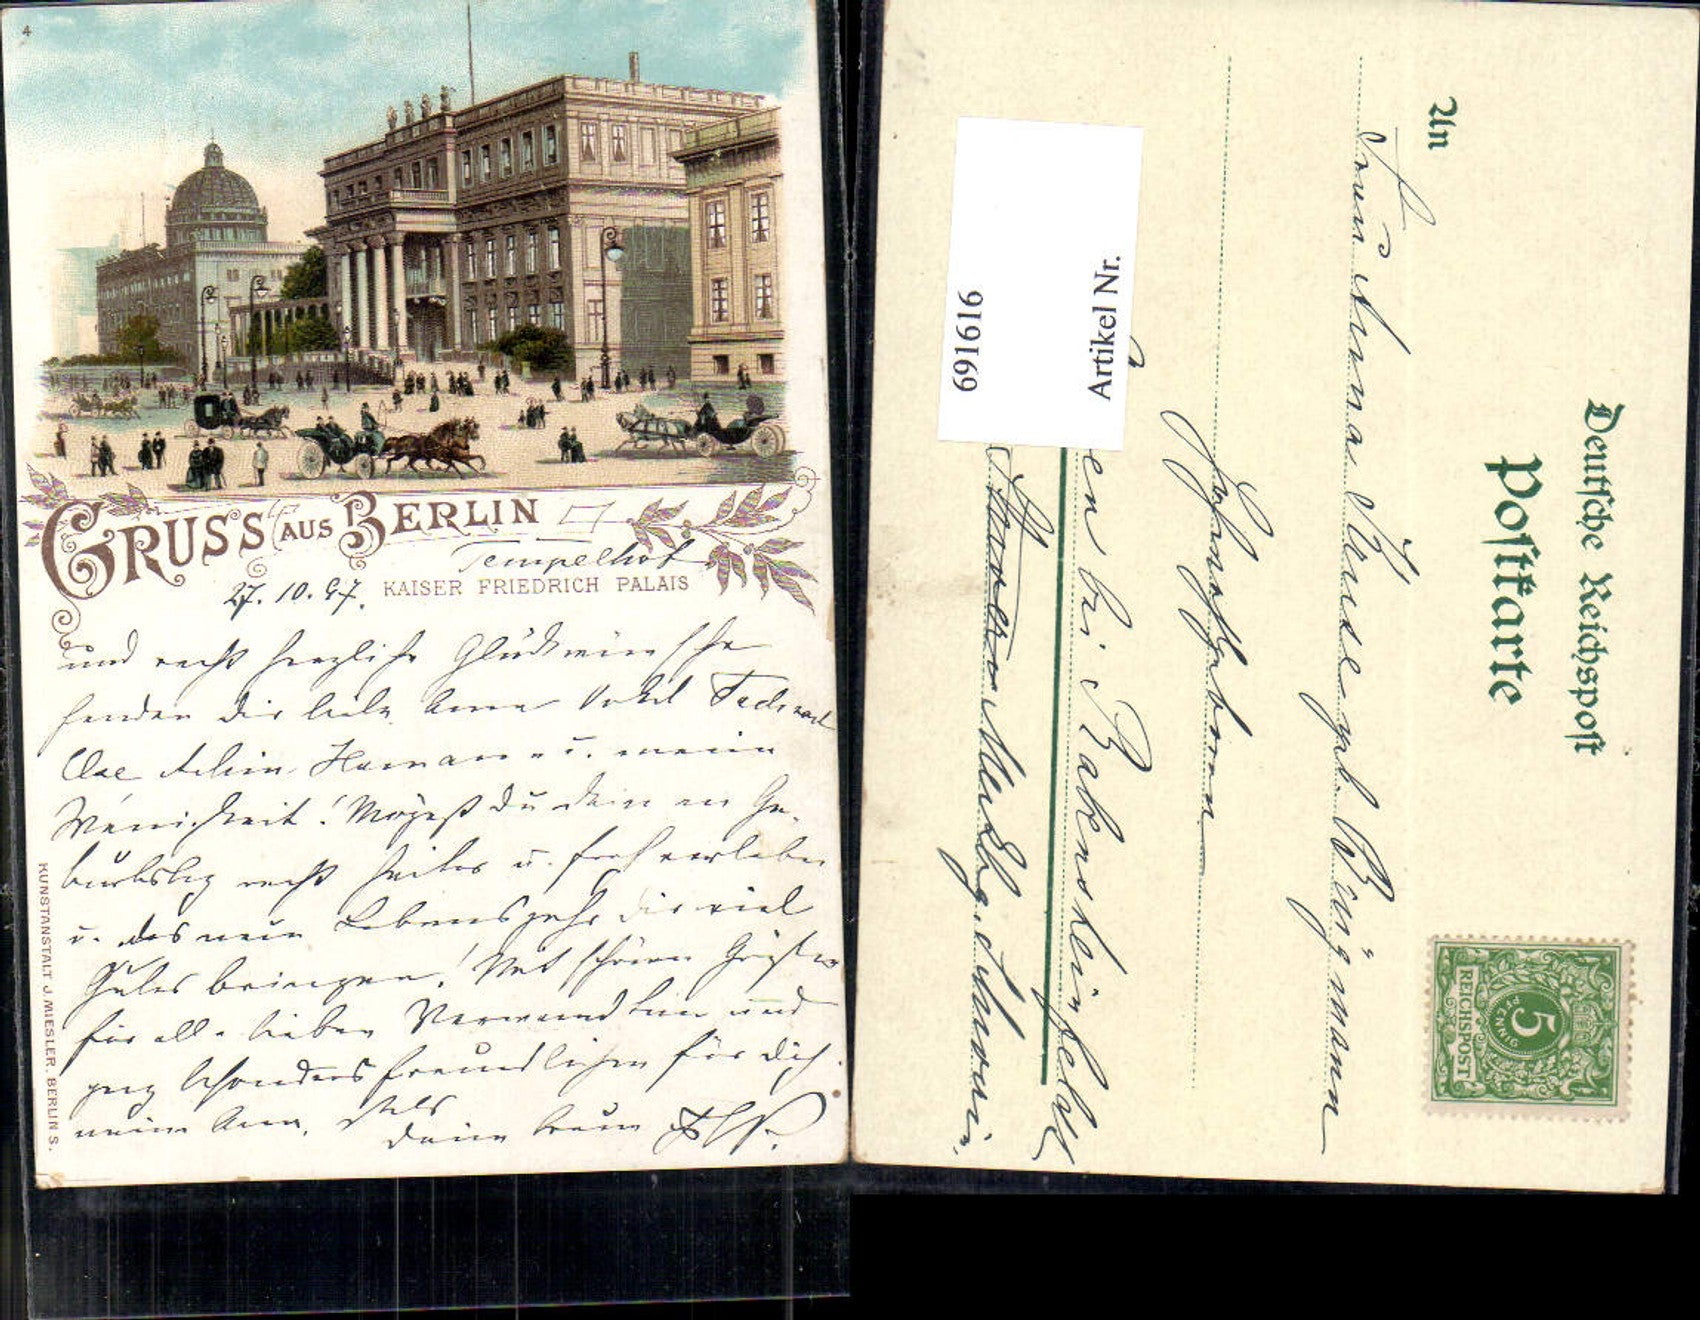 4
GRUSS AUS BERLIN
Tempelhof
27. 10. 97. KAISER FRIEDRICH PALAIS
und recht herzliche Glückwünsche
senden Dir liebe Anna Onkel
Else Achim Hermann u. meine
Wenigkeit! Mögest Du Deinen Ge-
burtstag recht heiter u. froh verleben
u. das neue Lebensjahr dir viel
Gutes bringen! Mit schönen Grüßen
für alle lieben Verwandten und
ganz besonders freundlichen für Dich
meine Anna, stets
Deine
KUNSTANSTALT J. MIESLER, BERLIN S.
Deutsche Reichspost
Postkarte
An
Frau Anna geb. Brüg mann
Hochwohlgeboren
en bei Rakow
Schwerin.
5
PFENNIG
REICHSPOST
Artikel Nr.
691616